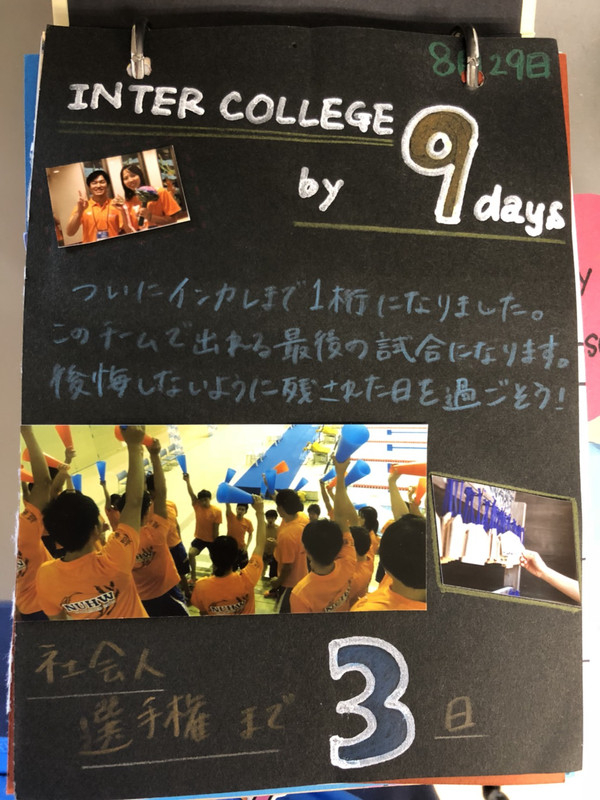 8月29日
INTER COLLEGE
by 9 days
ついにインカレまで1桁になりました。
このチームで出れる最後の試合になります。
後悔しないように残された日を過ごそう!
NUHW
NUHW
社会人
選手権まで 3 日